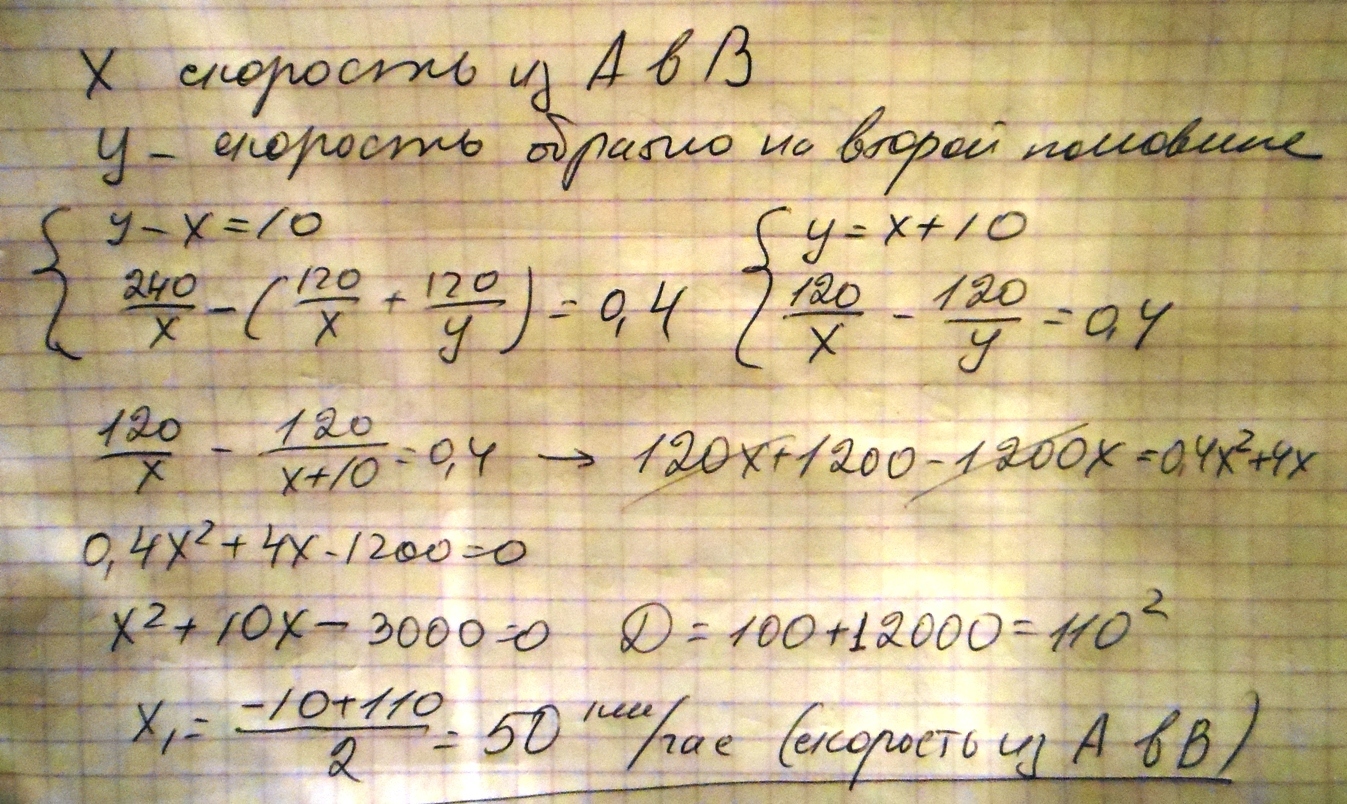 X скорость из А в В
У – скорость обратно на второй половине
{ y – x = 10
240/x – (120/x + 120/y) = 0,4
{ y = x + 10
120/x – 120/y = 0,4
120/x – 120/(x+10) = 0,4 → 120x + 1200 – 1200x = 0,4x² + 4x
0,4x² + 4x - 1200 = 0
x² + 10x – 3000 = 0 D = 100 + 12000 = 110²
x₁ = (-10 + 110)/2 = 50 км/час (скорость из А в В)